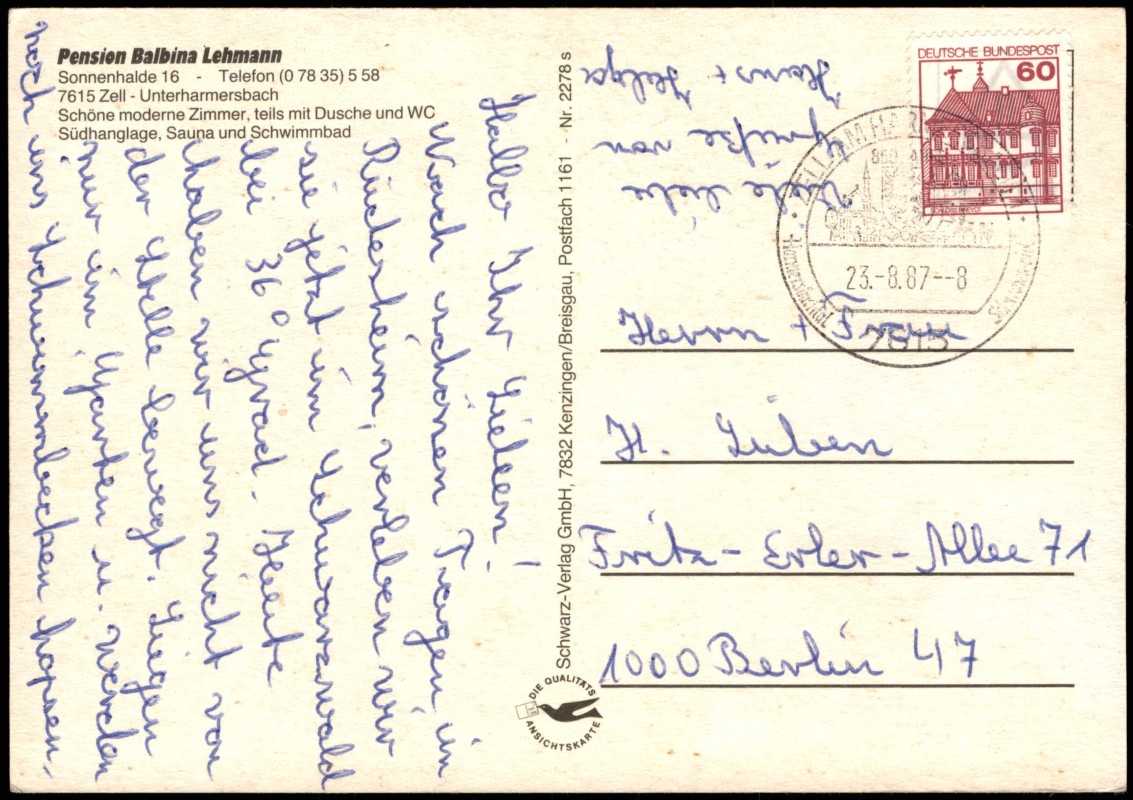 Pension Balbina Lehmann
Sonnenhalde 16 - Telefon (0 78 35) 5 58
7615 Zell - Unterharmersbach
Schöne moderne Zimmer, teils mit Dusche und WC
Südhanglage, Sauna und Schwimmbad
Hallo Ihr Lieben!
Nach schönen Tagen in
Rüdesheim, verleben wir
sie jetzt im Schwarzwald
bei 36° Grad. Heute
haben wir uns nicht von
der Stelle bewegt. Liegen
nur im Garten u. werden
noch ins Schwimmbecken hopsen.
Viele liebe
Grüße von
Hans + Helga
Schwarz-Verlag GmbH, 7832 Kenzingen/Breisgau, Postfach 1161 - Nr. 2278 s
DIE QUALITÄTS
ANSICHTSKARTE
DEUTSCHE BUNDESPOST
60
ZELL AM HAR
23.-8.87--8
7615
Herrn + Frau
H. Lüben
Fritz-Erler-Allee 71
1000 Berlin 47